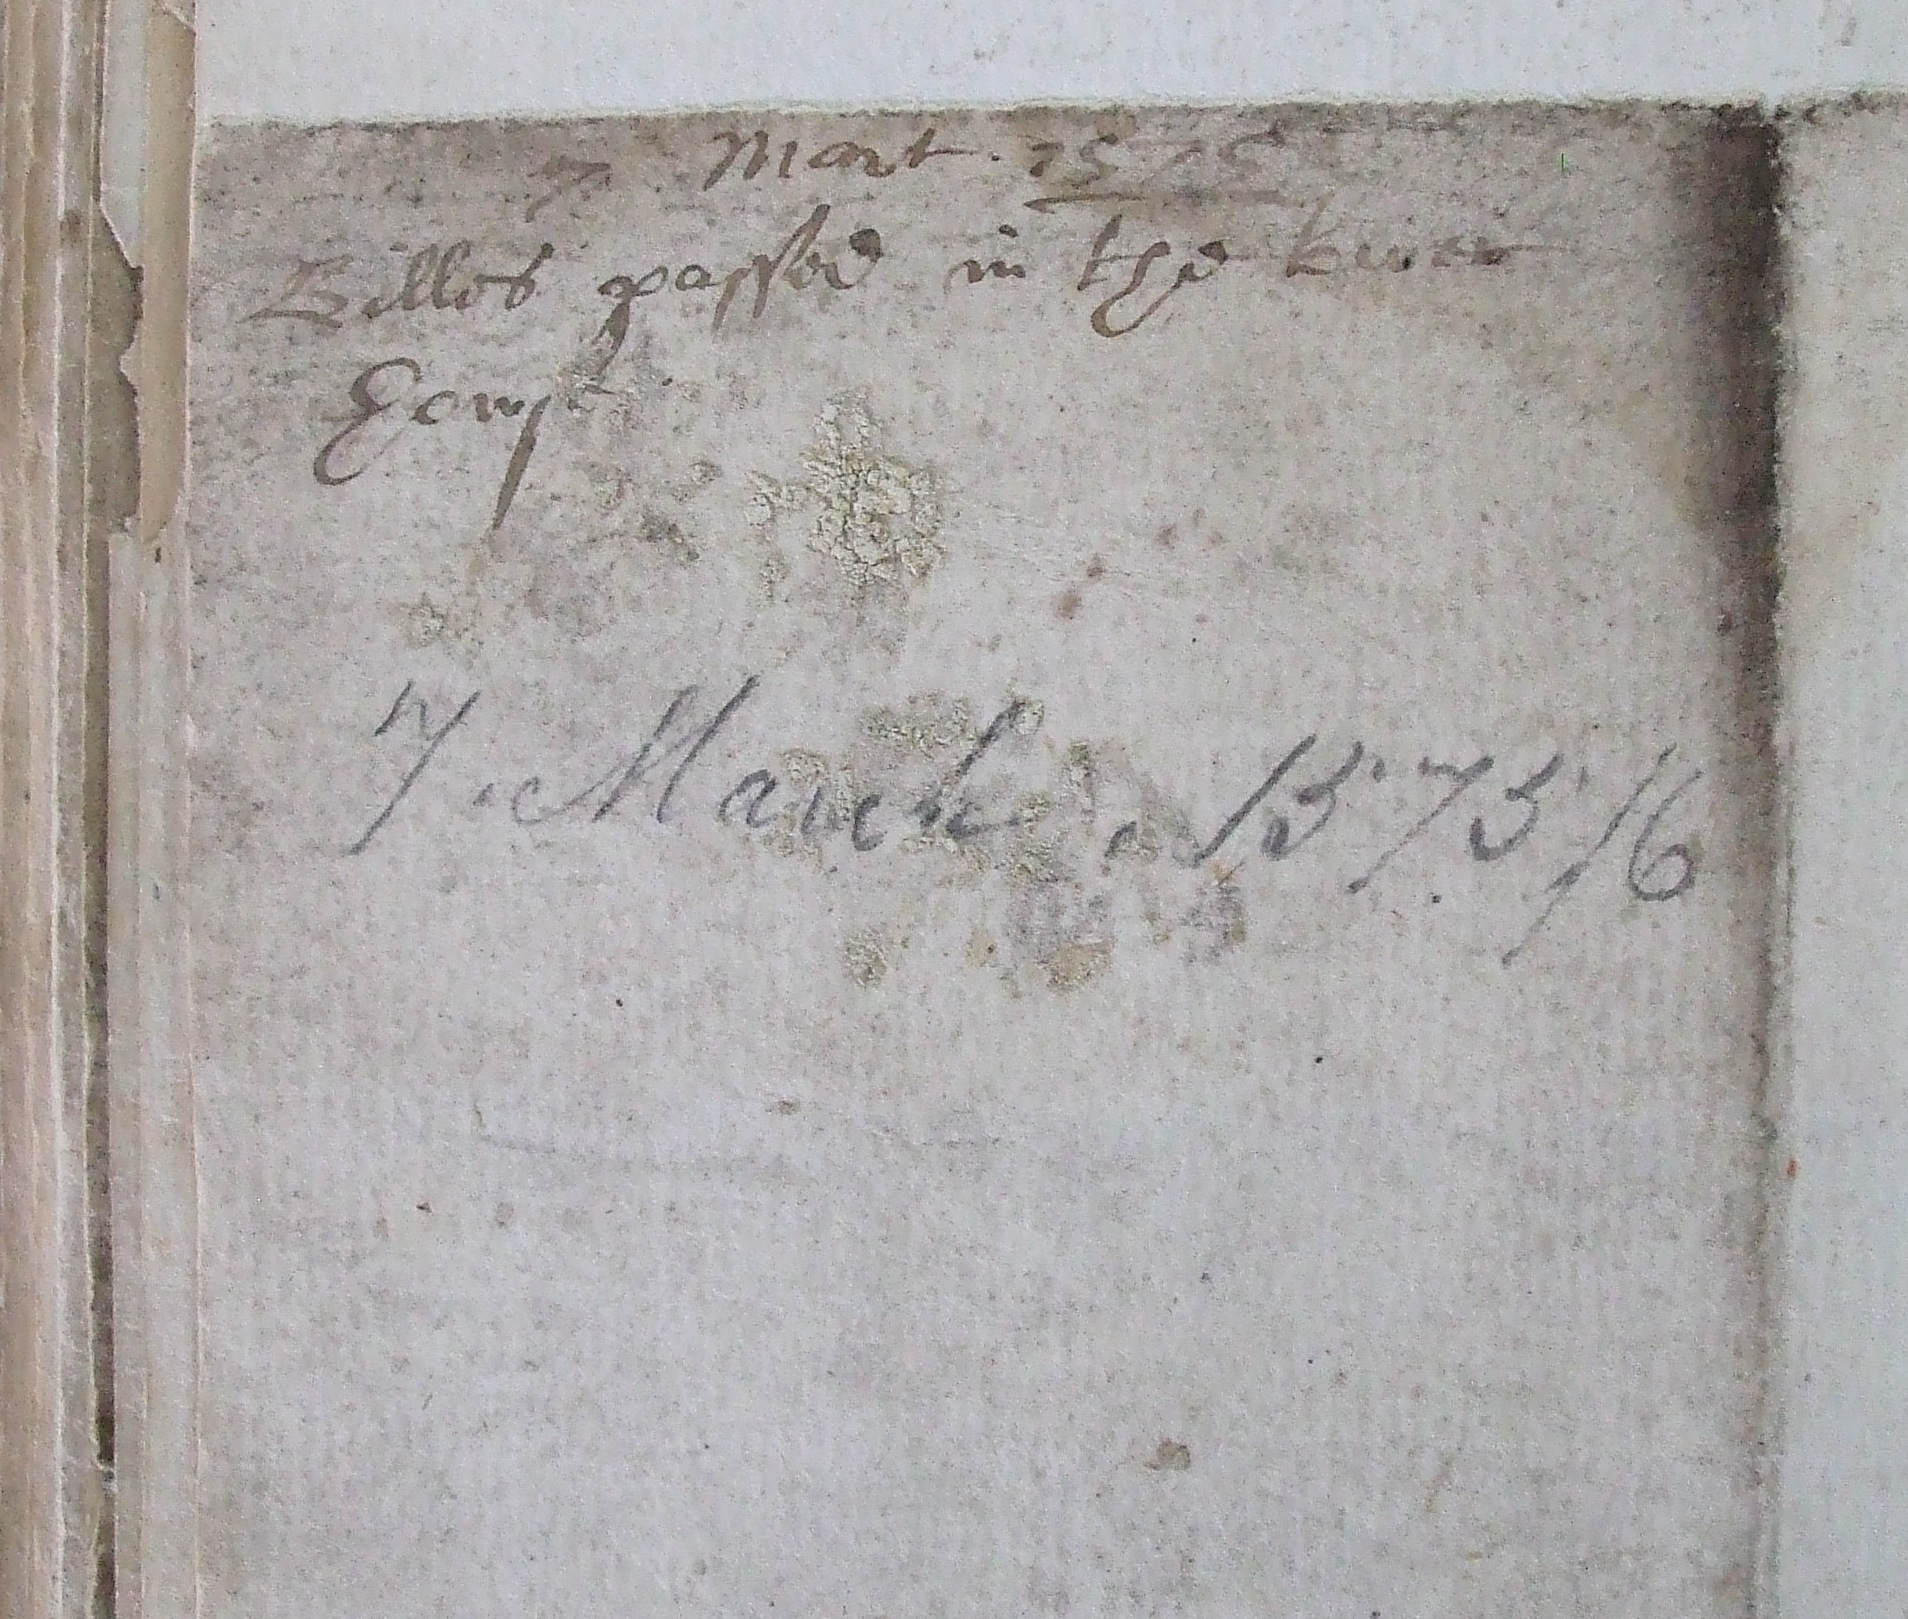 7 Mart. 1575
Billes passed in the Lower
howse.
7 March. 1575/6